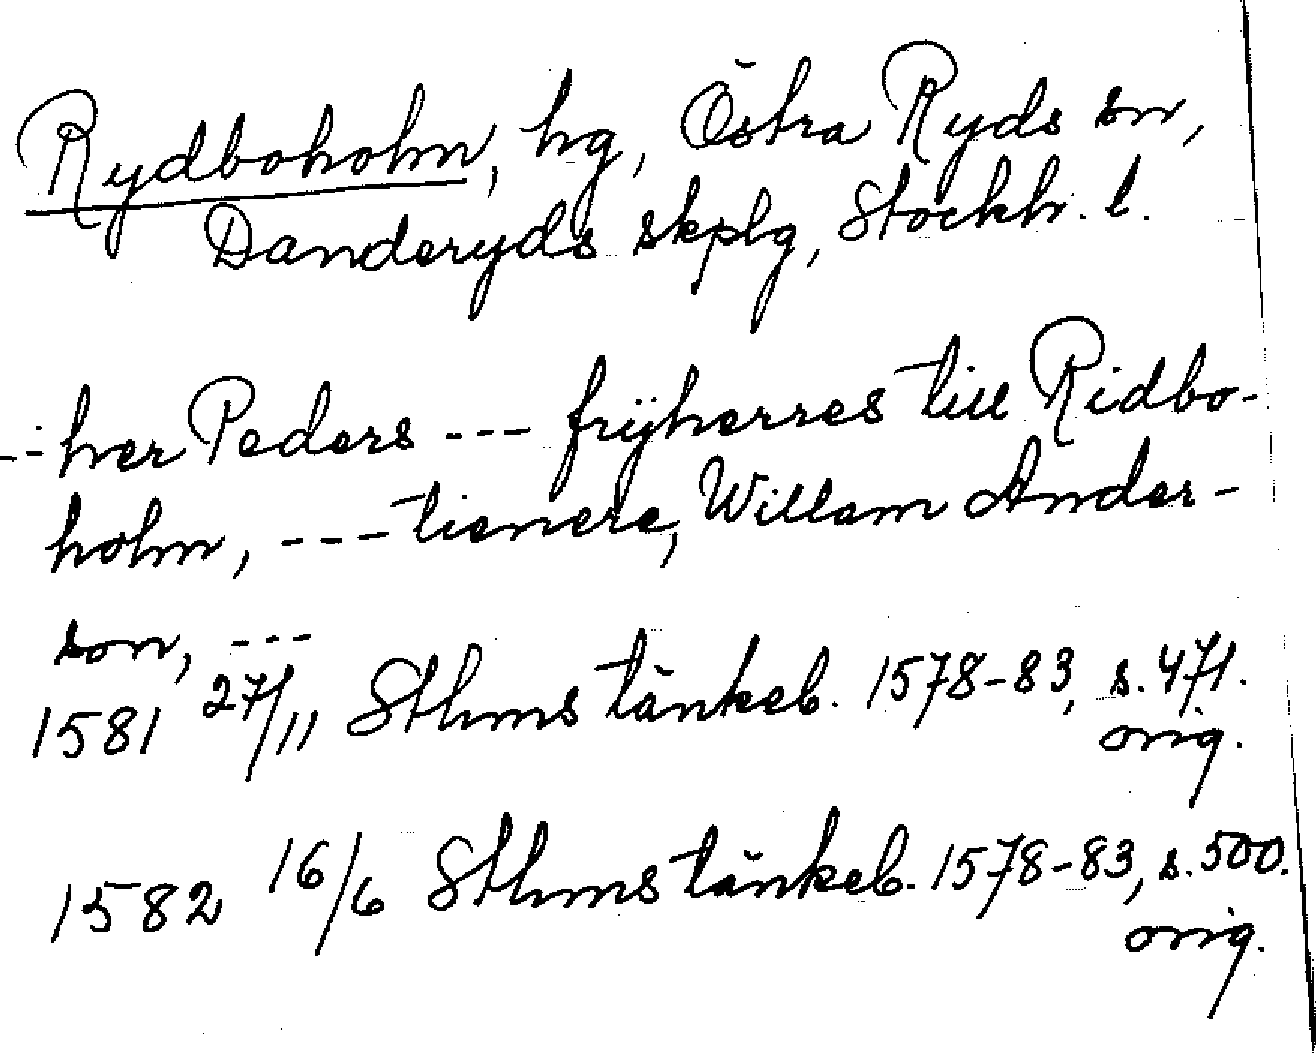 Rydboholm, hg, Östra Ryds sn,
Danderyds skplg, Stockh. l.
--- her Peders --- frÿherres till Ridbo-
holm, --- tienere, Willam Ander-
son, ---
1581 27/11 Sthms tänkeb. 1578-83, s. 471.
orig.
1582 16/6 Sthms tänkeb. 1578-83, s. 500.
orig.